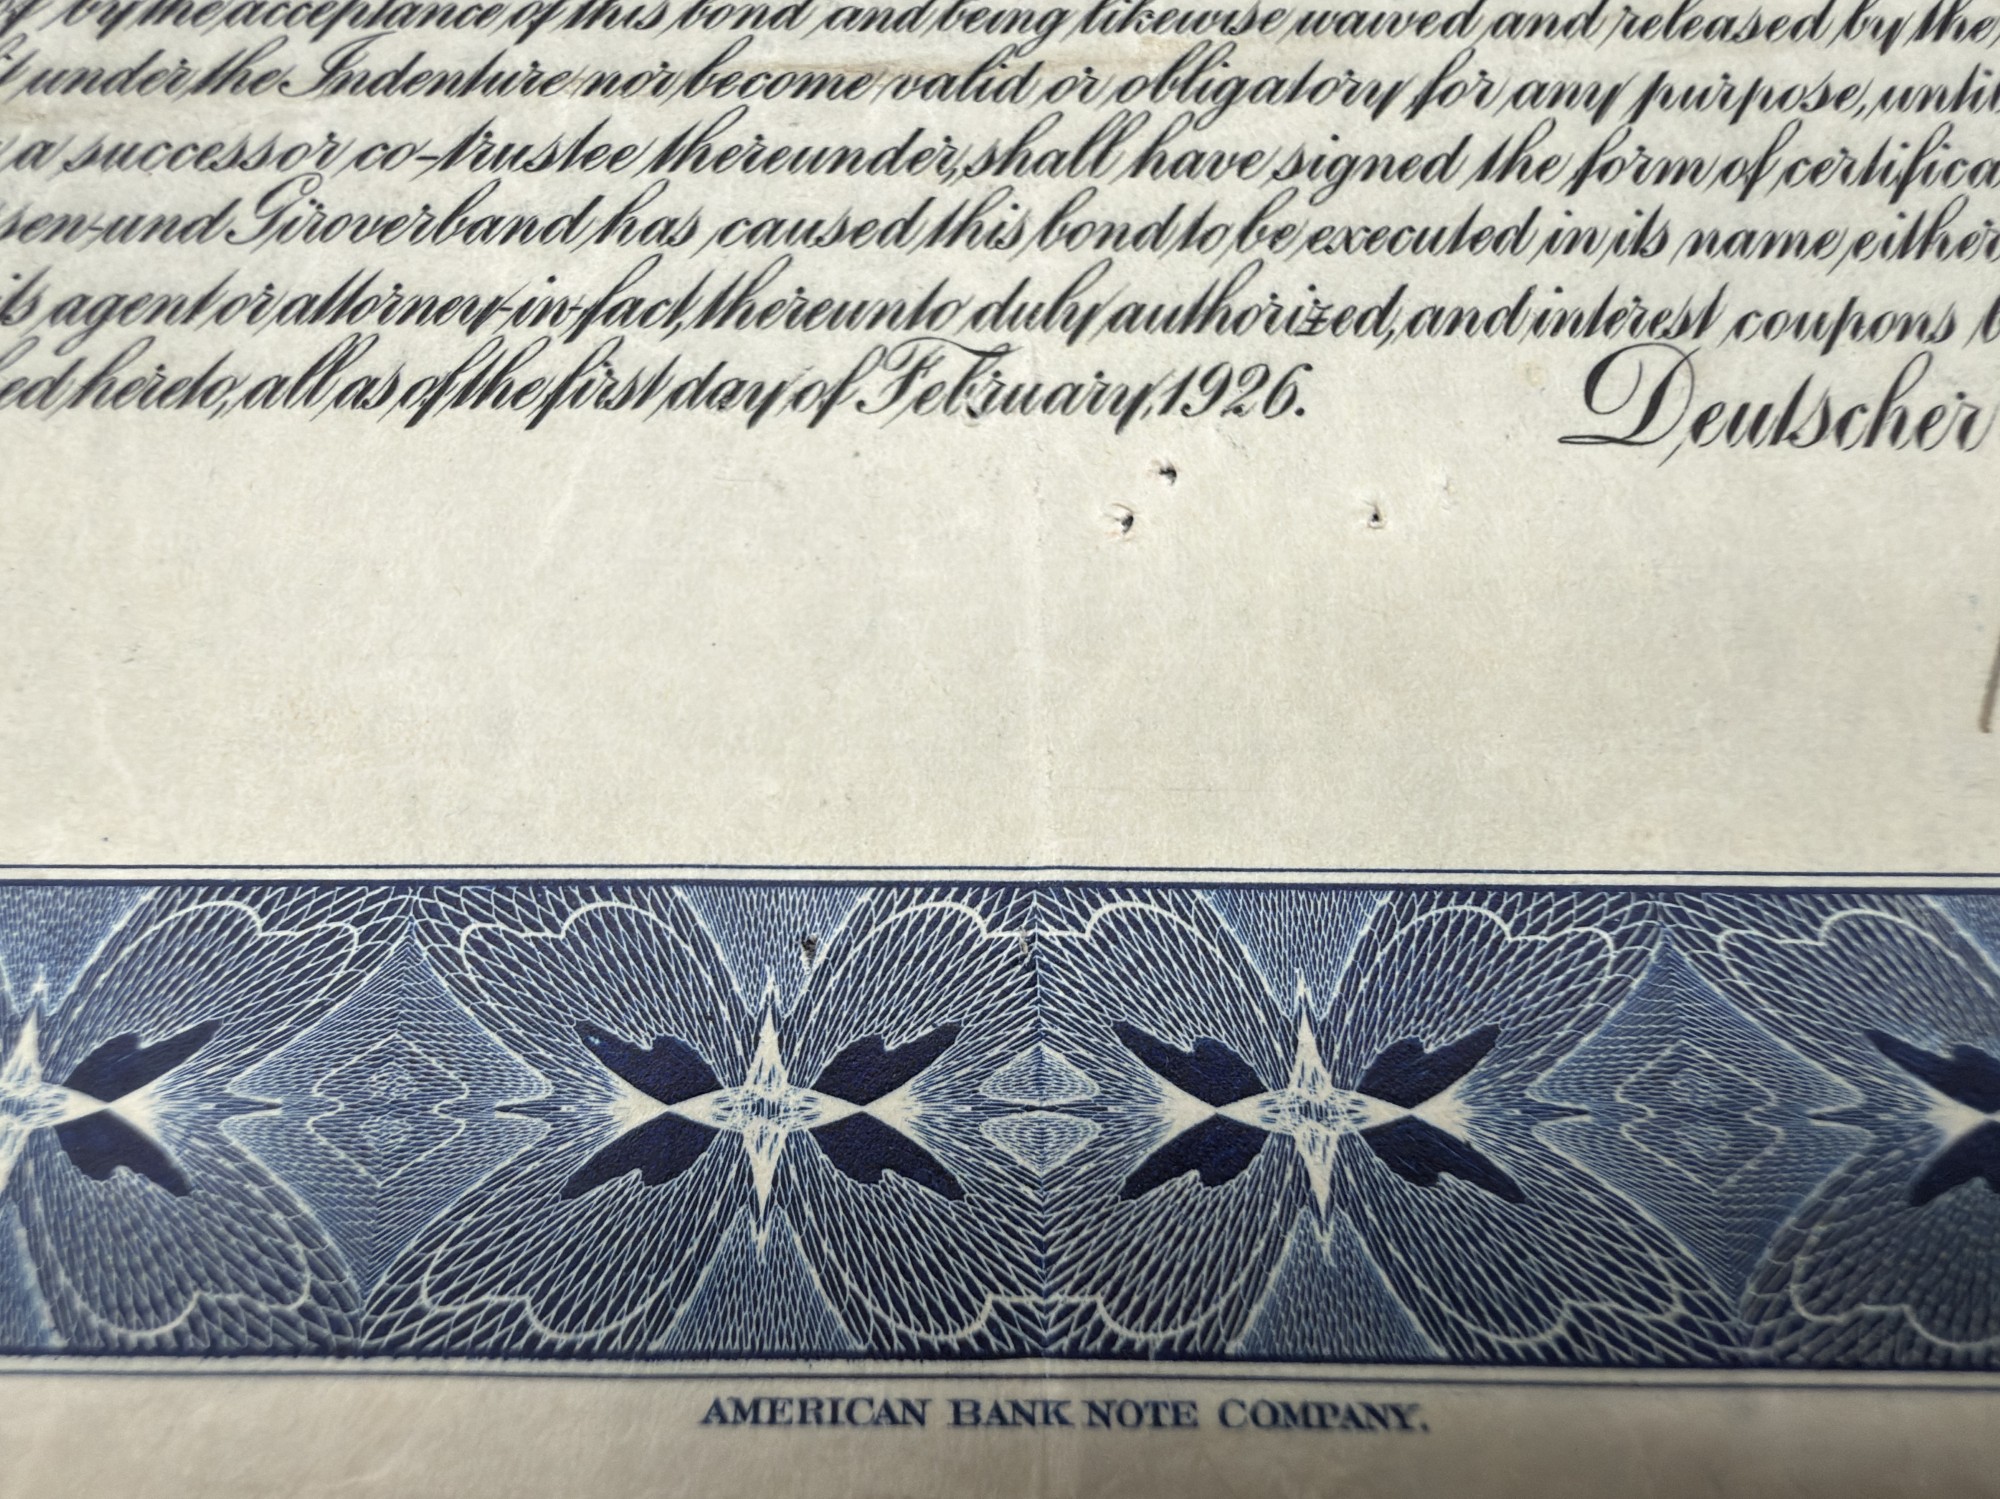 by the acceptance of this bond and being likewise waived and released by the
under the Indenture nor become valid or obligatory for any purpose, until
a successor co-trustee thereunder, shall have signed the form of certifica
sen-und Giroverband has caused this bond to be executed in its name either
its agent or attorney-in-fact, thereunto duly authorized, and interest coupons
ed hereto, all as of the first day of February, 1926.
Deutscher
AMERICAN BANK NOTE COMPANY.